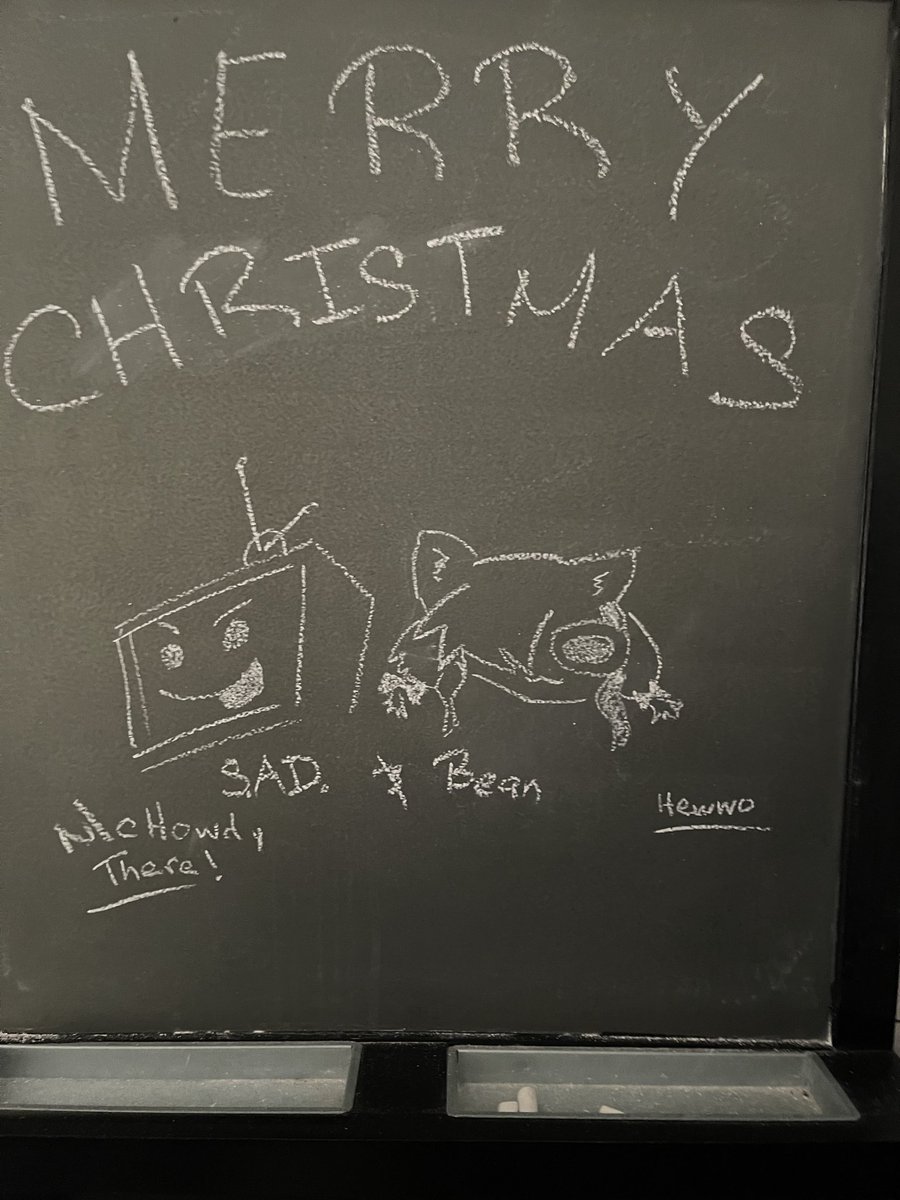 MERRY
CHRISTMAS
S.A.D. & Bean
McHowd,
There!
Hewwo